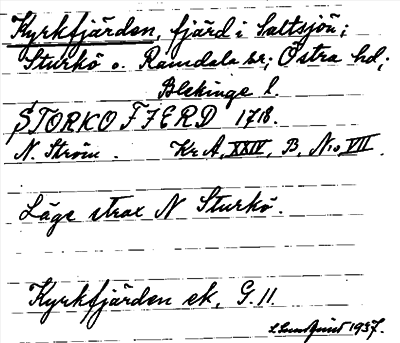 Kyrkfjärden, fjärd i Saltsjön;
Sturkö o. Ramdala sr; Östra hd;
Blekinge l.
STORKO FJERD 1718.
N. Ström. Kr. A, XXIV, B, No VII.
Läge strax N Sturkö.
Kyrkfjärden ek, G. 11.
1937.